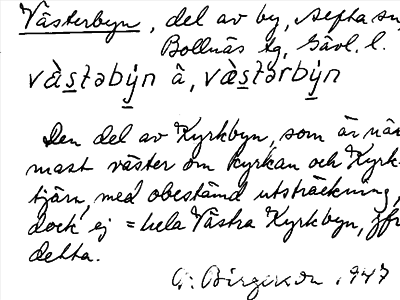 Västerbyn, del av by, Alfta sn,
Bollnäs tg, Gävl. l.
vàstəbýn â, væ̀stərbýn
Den del av Kyrkbyn, som är när-
mast väster om kyrkan och Kyrk-
tjärn, med obestämd utsträckning,
dock ej = hela Västra Kyrkbyn, jfr
detta.
G. Birgerson 1947